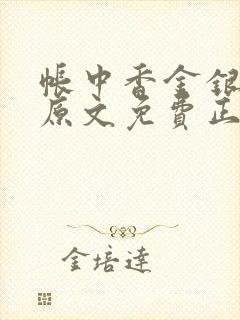 帳中香金銀
原文免費正
金培達